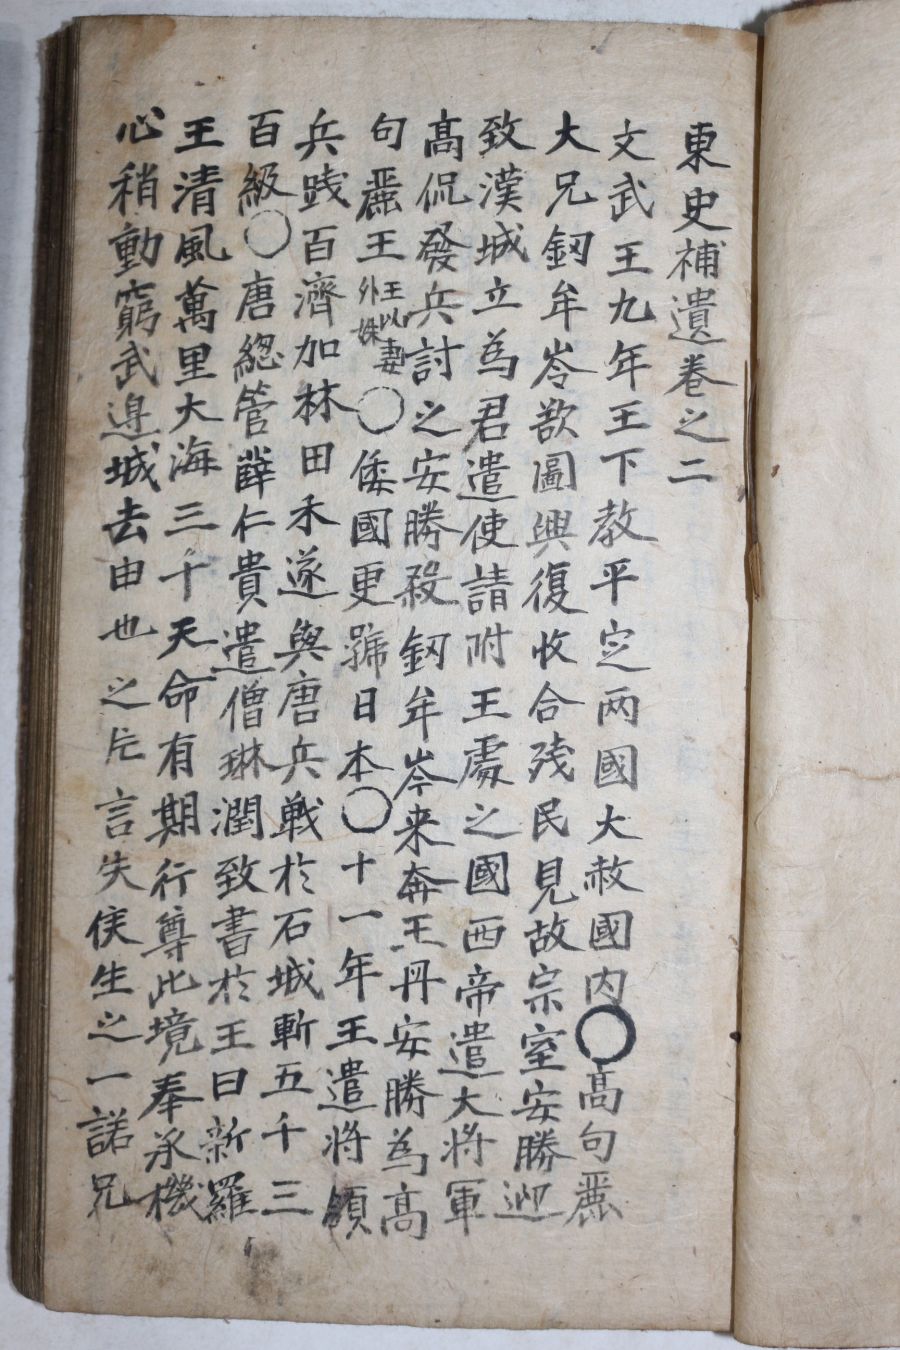 東史補遺卷之二
文武王九年王下教平定两國大赦國内○高句麗
大兄釼牟岺欲圖興復收合残民見故宗室安勝迎
致漢城立為君遣使請附王處之國西帝遣大将軍
高侃發兵討之安勝殺釼牟岑来奔王丹安勝為高
句麗王王以妻外姝○倭國更號日本○十一年王遣将領
兵践百濟加林田禾遂與唐兵戰於石城斬五千三
百級○唐總管薛仁貴遣僧琳潤致書於王曰新羅
王清風萬里大海三千天命有期行尊此境奉承機
心稍動窮武邊城去由也之片言失侯生之一諾兄